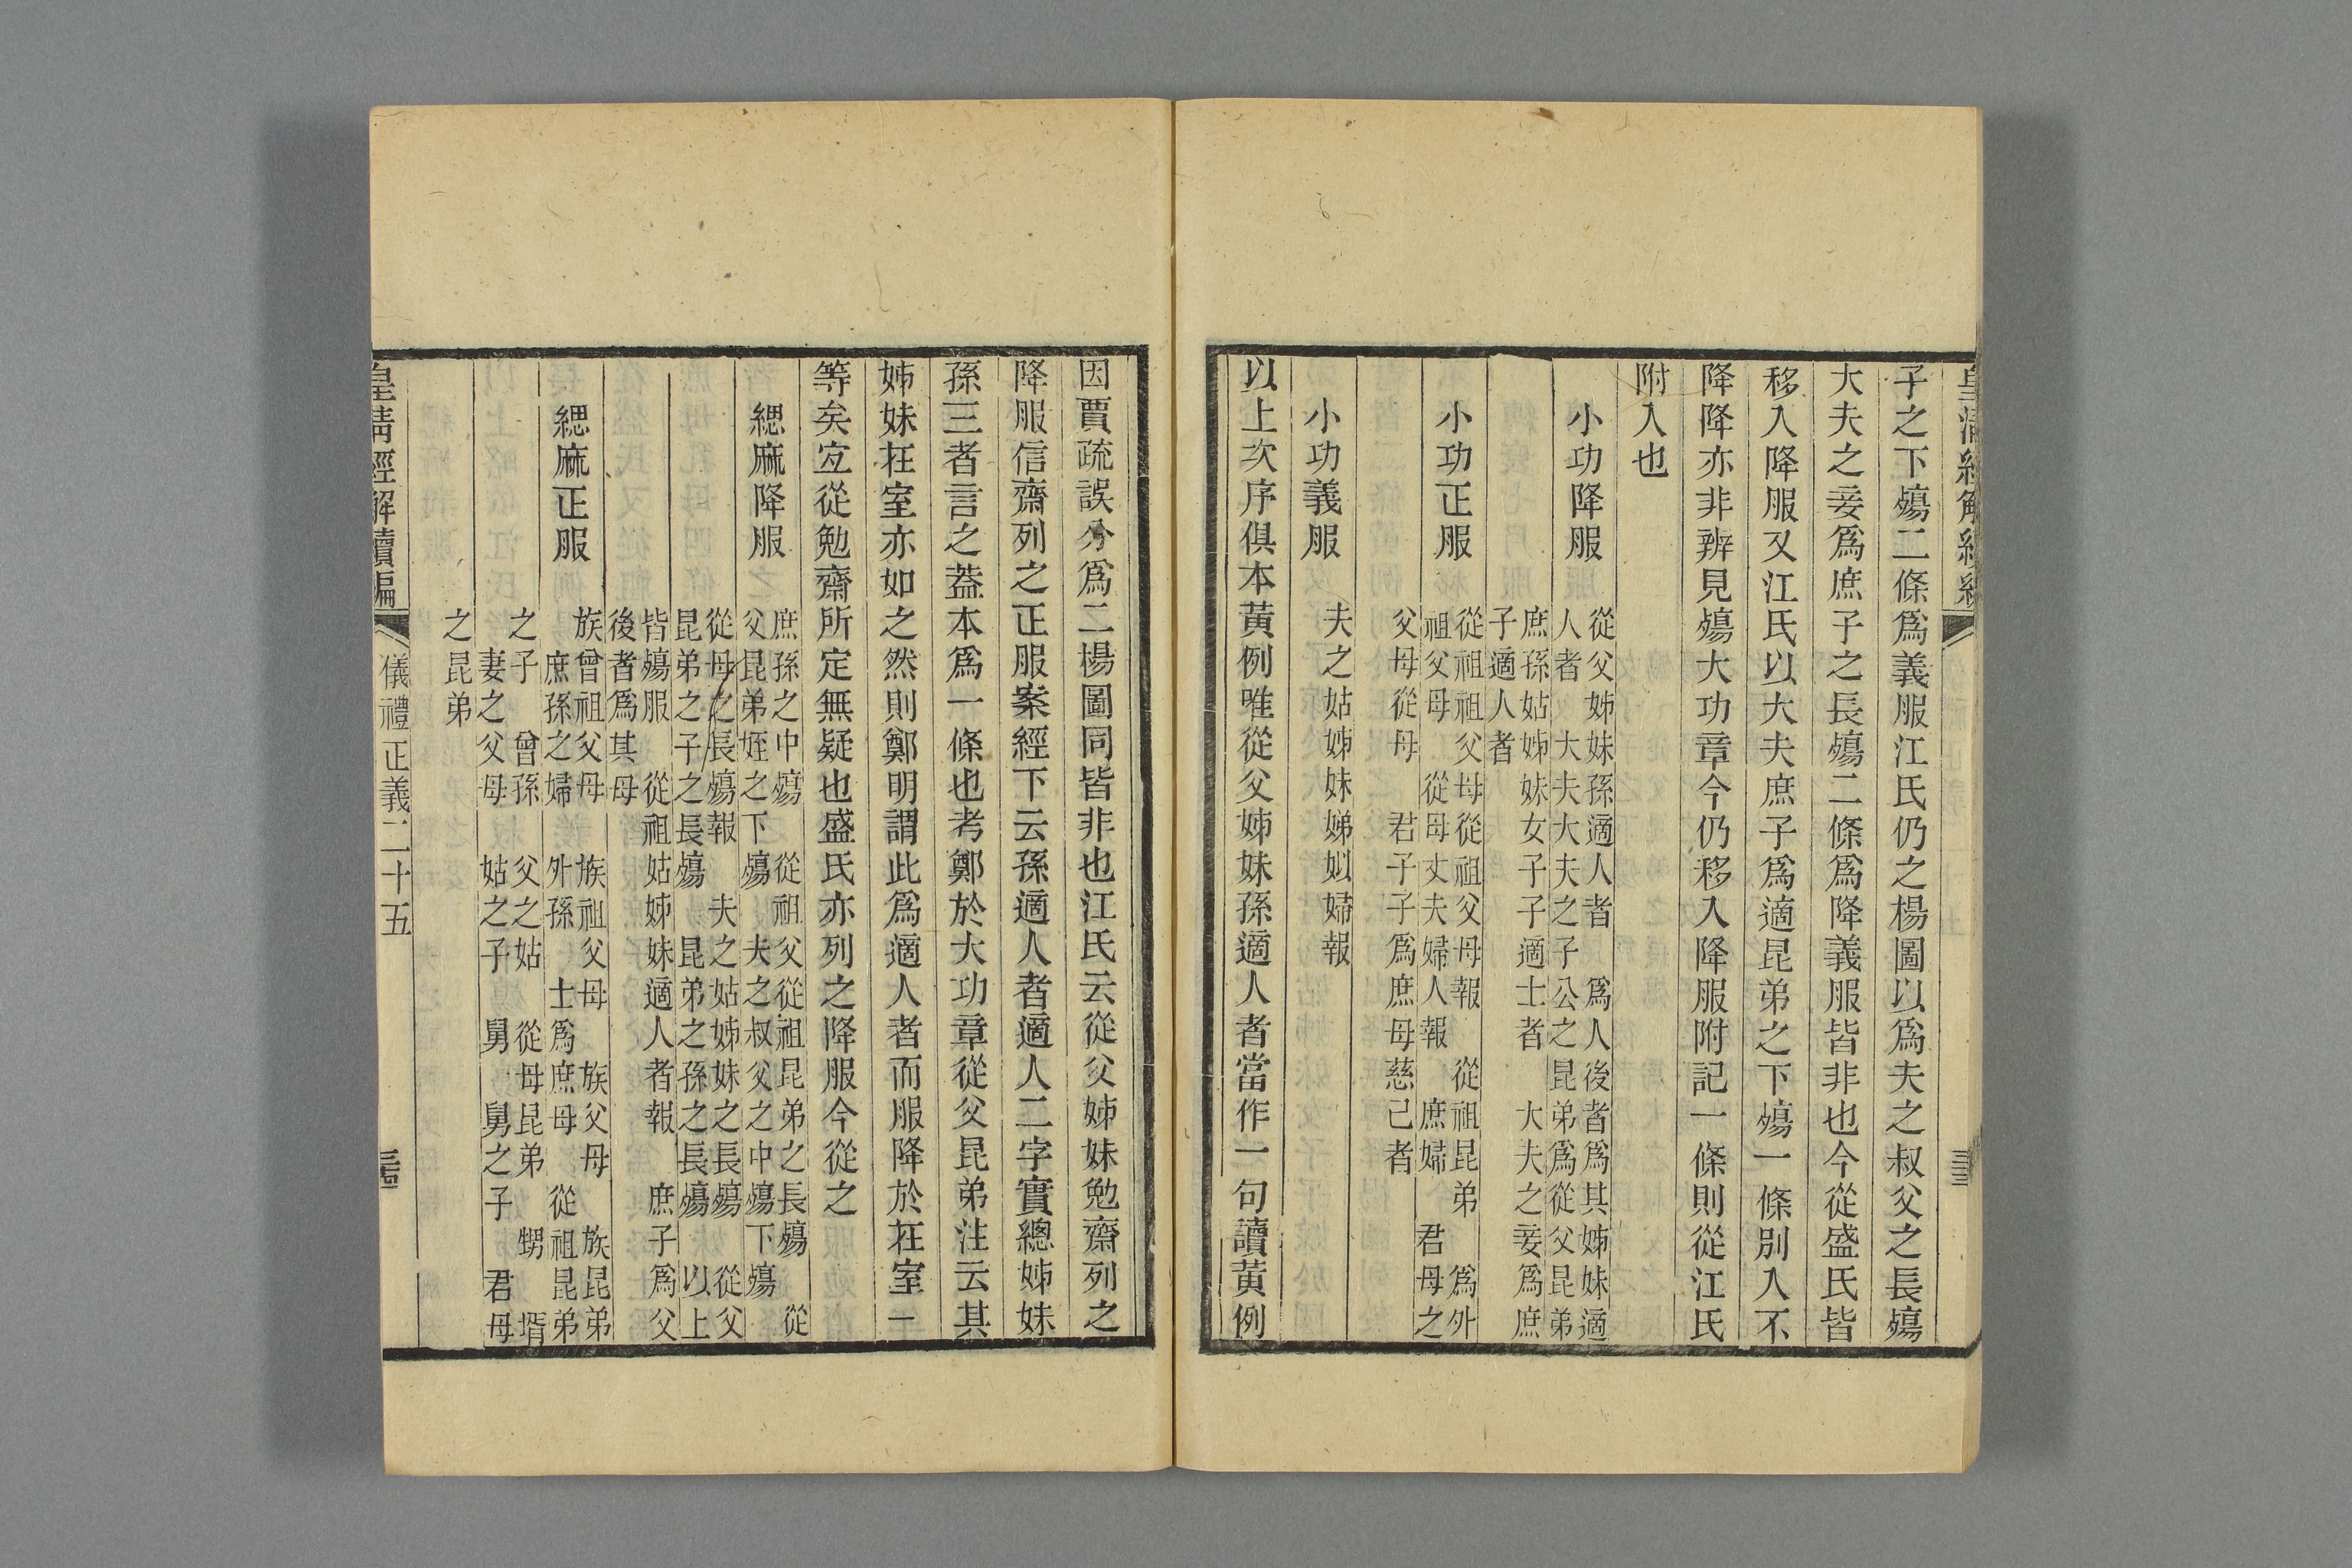 皇清經解續編
子之下殤二條爲義服江氏仍之楊圖以爲夫之叔父之長殤
大夫之妾爲庶子之長殤二條爲降義服皆非也今從盛氏皆
移入降服又江氏以大夫庶子爲適昆弟之下殤一條別入不
降降亦非辨見殤大功章今仍移入降服附記一條則從江氏
附入也
小功降服
從父姊妹孫適人者 爲人後者爲其姊妹適
人者 大夫大夫之子公之昆弟爲從父昆弟
庶孫姑姊妹女子子適士者 大夫之妾爲庶
子適人者
小功正服
從祖祖父母從祖父母報 從祖昆弟 爲外
祖父母 從母丈夫婦人報 庶婦 君母之
父母從母 君子子爲庶母慈己者
小功義服
夫之姑姊妹娣姒婦報
以上次序俱本黃例唯從父姊妹孫適人者當作一句讀黃例
因賈疏誤分爲二楊圖同皆非也江氏云從父姊妹勉齋列之
降服信齋列之正服案經下云孫適人者適人二字實總姊妹
孫三者言之葢本爲一條也考鄭於大功章從父昆弟注云其
姊妹在室亦如之然則鄭明謂此爲適人者而服降於在室一
等矣宐從勉齋所定無疑也盛氏亦列之降服今從之
緦麻降服
庶孫之中殤 從祖父從祖昆弟之長殤 從
父昆弟姪之下殤 夫之叔父之中殤下殤
從母之長殤報 夫之姑姊妹之長殤 從父
昆弟之子之長殤 昆弟之孫之長殤 以上
皆殤服 從祖姑姊妹適人者報 庶子爲父
後者爲其母
緦麻正服
族曾祖父母 族祖父母 族父母 族昆弟
庶孫之婦 外孫 士爲庶母 從祖昆弟
之子 曾孫 父之姑 從母昆弟 甥 壻
妻之父母 姑之子 舅 舅之子 君母
之昆弟
皇清經解續編 儀禮正義二十五